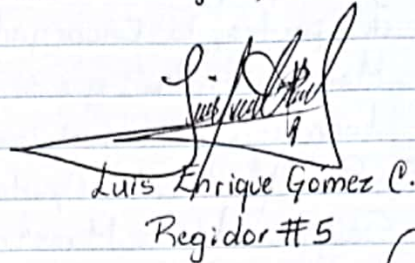 Luis Enrique Gómez C.
Regidor #5